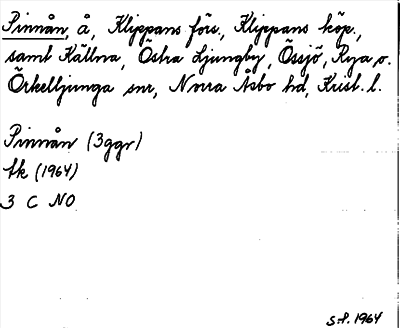 Pinnån, å, Klippans förs., Klippans köp.,
samt Källna, Östra Ljungby, Össjö, Rya o.
Örkelljunga snr, Norra Åsbo hd, Krist. l.
Pinnån (3ggr)
tk (1964)
3 C NO
S.P. 1964